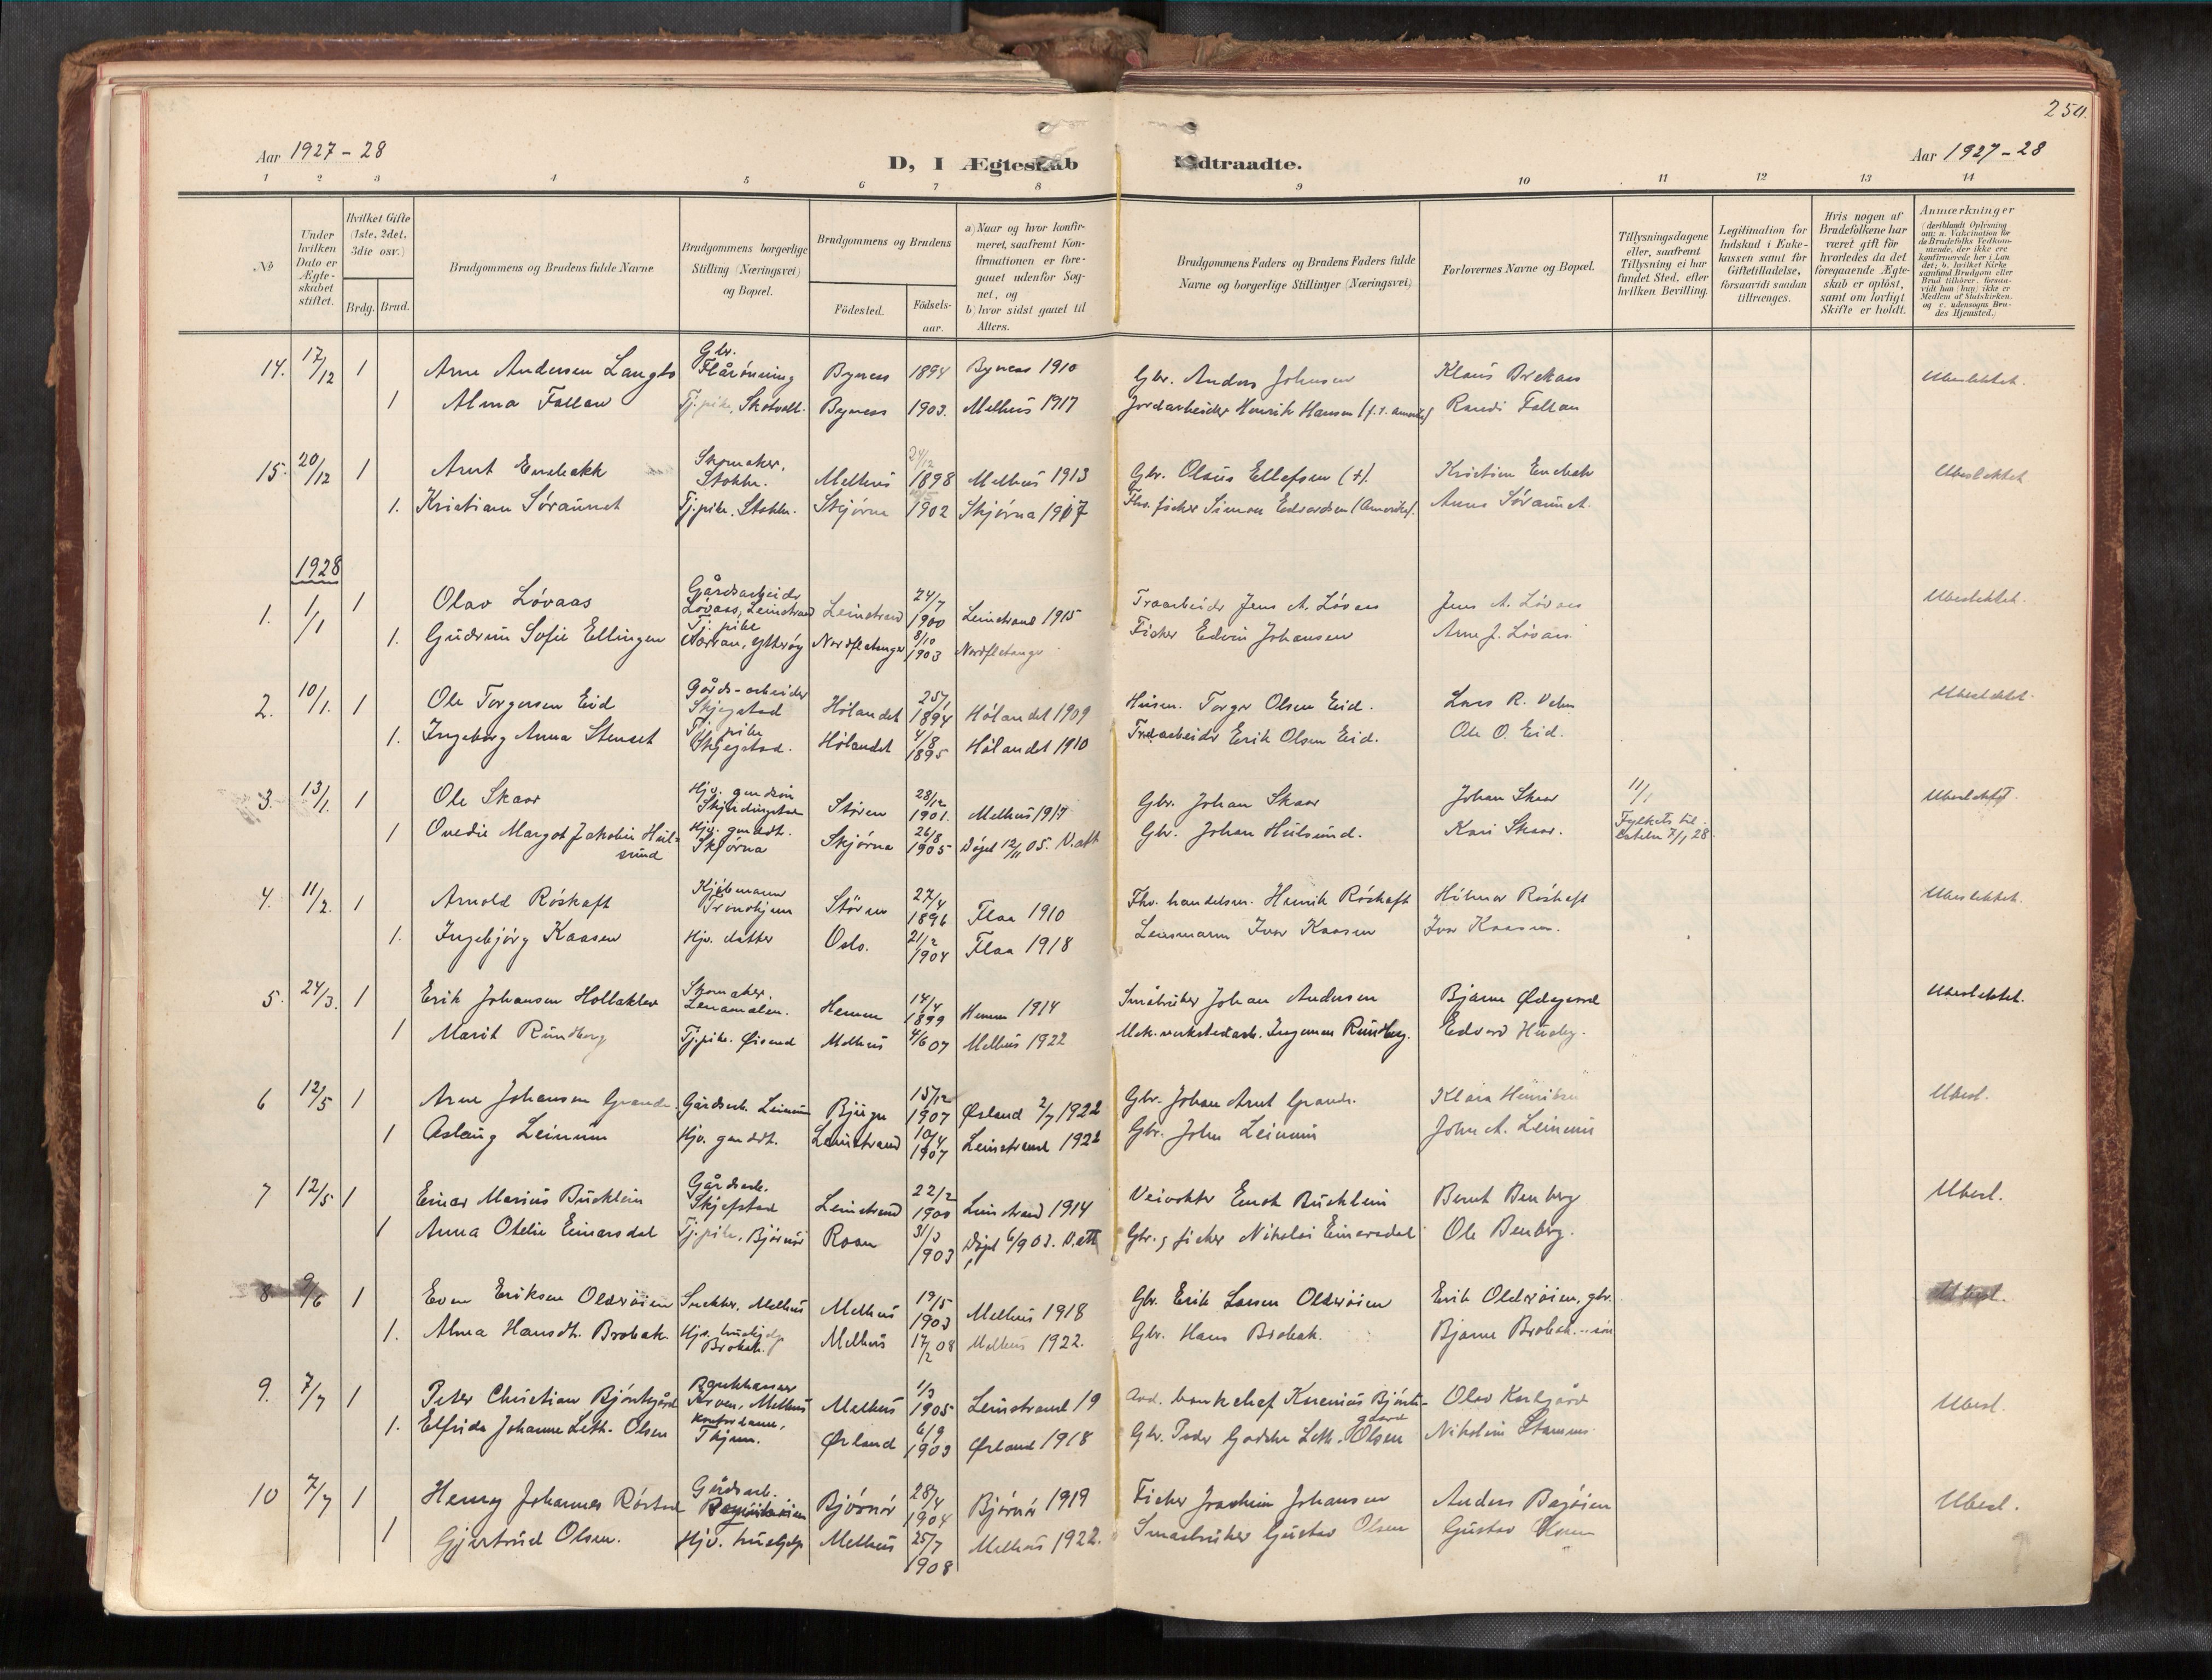 250.
Aar 1927-28
D, I Ægteskab
Indtraadte.
Aar 1927-28
1 2 3 4 5 6 7 8 9 10 11 12 13 14
No
Under hvilken Dato er Ægteskabet stiftet.
Hvilket Gifte (1ste, 2det, 3die osv.)
Brdg. Brud.
Brudgommens og Brudens fulde Navne
Brudgommens borgerlige Stilling (Næringsvei) og Bopæl.
Brudgommens og Brudens
Födested.
Födselsaar.
a) Naar og hvor konfirmeret, saafremt Konfirmationen er foregaaet udenfor Sognet, og
b) hvor sidst gaaet til Alters.
Brudgommens Faders og Brudens Faders fulde Navne og borgerlige Stillinger (Næringsvei)
Forlovernes Navne og Bopæl.
Tillysningsdagene eller, saafremt Tillysning ei har fundet Sted, efter hvilken Bevilling.
Legitimation for Indskud i Enkekassen samt for Giftetilladelse, forsaavidt saadan tiltrænges.
Hvis nogen af Brudefolkene har været gift för hvorledes da det foregaaende Ægteskab er oplöst, samt om lovligt Skifte er holdt.
Anmærkninger
(deriblandt Oplysning om: a. Vakcination for de Brudefolks Vedkommende, der ikke ere konfirmerede her i Landet; b. hvilket Kirkesamfund Brudgom eller Brud tilhörer, forsaavidt han (hun) ikke er Medlem af Statskirken, og c. udensogns Brudes Hjemsted.)
14. 17/12 1 Arne Andersen Langlo Gbr. Flårönning Byness 1894 Byness 1910 Gbr. Anders Johnsen Klaus Brekaas Ubeslektet.
1 Alma Fallan Tj.pike, Skotvoll. Byness 1903. Melhus 1917 Jordarbeider Henrik Hansen Randi Fallan
15. 20/12 1 Arnt Enebakk Skomaker, Stokke. Melhus 24/12 1898 Melhus 1913 Gbr. Olaus Ellefsen (+). Kristian Enebak Ubeslektet
1. Kristiane Söraunet Tj.pike, Stokke. Skjörna 1902 Skjörna 1917 Fhv. fisker Simon Edvardsen (Amerika). Anna Söraunet.
1928
1. 1/1 1 Olav Lövaas Gårdsarbeider Lövaas, Leinstrand Leinstrand 24/7 1900 Leinstrand 1915 Træarbeider Jens A. Lövaas Jens A. Lövaas Ubeslektet.
1. Gudrun Sofie Ellingsen Tj.pike Norvan, Ytteröy Nordflatanger 8/10 1903 Nordflatanger Fisker Edvin Johansen Arne J. Lövaas.
2. 10/1. 1 Ole Torgersen Eid Gårds-arbeider Skjegstad Hölandet 25/1 1894 Hölandet 1909 Husm. Torger Olsen Eid. Lars R. Ubeslektet.
1. Ingeborg Anna Stenset Tj.pike Skjegstad. Hölandet 4/8 1895 Hölandet 1910 Træarbeider Erik Olsen Eid. Ole O. Eid.
3. 13/1. 1 Ole Skaar Hjv. gmdsön Stören 28/12 1901. Melhus 1917 Gbr. Johan Skaar Johan Skaar 11/1 Ubeslektet.
1 Ovedie Margot Jakobie Hulsund Hjv. gmddt. Skjörna Skjörna 26/8 1905 Döpt 12/11 05. V.att Gbr. Johan Hulsund. Kari Skaar. Fylkets til- 7/1 28
4. 11/2. 1 Arnold Röskaft Kjöbmann Trondhjem Stören 27/4 1896 Flaa 1910 Fhv. handelsm. Henrik Röskaft Hilmar Röskaft Ubeslektet.
1. Ingebjörg Kaasen Hjv. datter Oslo. 21/2 1904 Flaa 1918 Lensmann Ivar Kaasen Ivar Kaasen.
5. 24/3. 1 Erik Johansen Hollaklev Skomaker. Hemne 14/4 1899 Hemne 1914 Småbruker Johan Andersen Bjarne Ødegaard Ubeslektet.
1 Marit Rundberg Tj.pike. Øisand Melhus 4/6 07 Melhus 1922 Mek. verkstedarb. Ingeman Rundberg. Edvard Huseby.
6 12/5 1 Arne Johansen Grande. Gårdsarb. Leinum Bjugn 15/12 1907 Ørland 2/7 1922 Gbr. Johan Arnt Grande. Klara Henriksen Ubesl.
1 Aslaug Leinum Hjv. gmddt. Leinstrand 10/4 1907 Leinstrand 1922 Gbr. John Leinum John A. Leinum
7 12/5 1 Einar Marius Bucklein Gårdsarb. Skjefstad Leinstrand 22/2 1900 Leinstrand 1914 Veivokter Ernst Bucklein Bernt Benberg Ubesl.
1 Anna Otelie Einarsdal Tj.pike, Björnör Roan 31/3 1903 Döpt 6/9 03. V.att Gbr. & fisker Nikolai Einarsdal Ole Benberg.
8 9/6 1 Even Eriksen Olderöien Snekker, Melhus Melhus 19/5 1903 Melhus 1918 Gbr. Erik Larsen Olderöien Erik Olderöien, gbr. Ubesl.
1. Alma Hansdt. Brobak. Hjv. hushjelp Brobak. Melhus 17/2 08 Melhus 1922. Gbr. Hans Brobak. Bjarne Brobak. - sön
9. 7/7 1 Peter Christian Björntegård Bankkasser Melhus Melhus 1/3 1905 Leinstrand 19 bankchef Björntegaard Olav Ubesl.
1. Elfrida Johanne Leth-Olsen Kontordame, Thjem. Ørland 6/9 1903 Ørland 1918 Gbr. Peder Godske Leth-Olsen Nikolai
10 7/7 1 Henry Johannes Röstad Gårdsarb. Björnör 28/4 1904 Björnör 1919 Fisker Joachim Johansen Anders Bagöien Ubesl.
1 Gjertrud Olsen. Hjv. hushjelp Melhus 25/7 1908 Melhus 1922. Småbruker Gustav Olsen Gustav Olsen